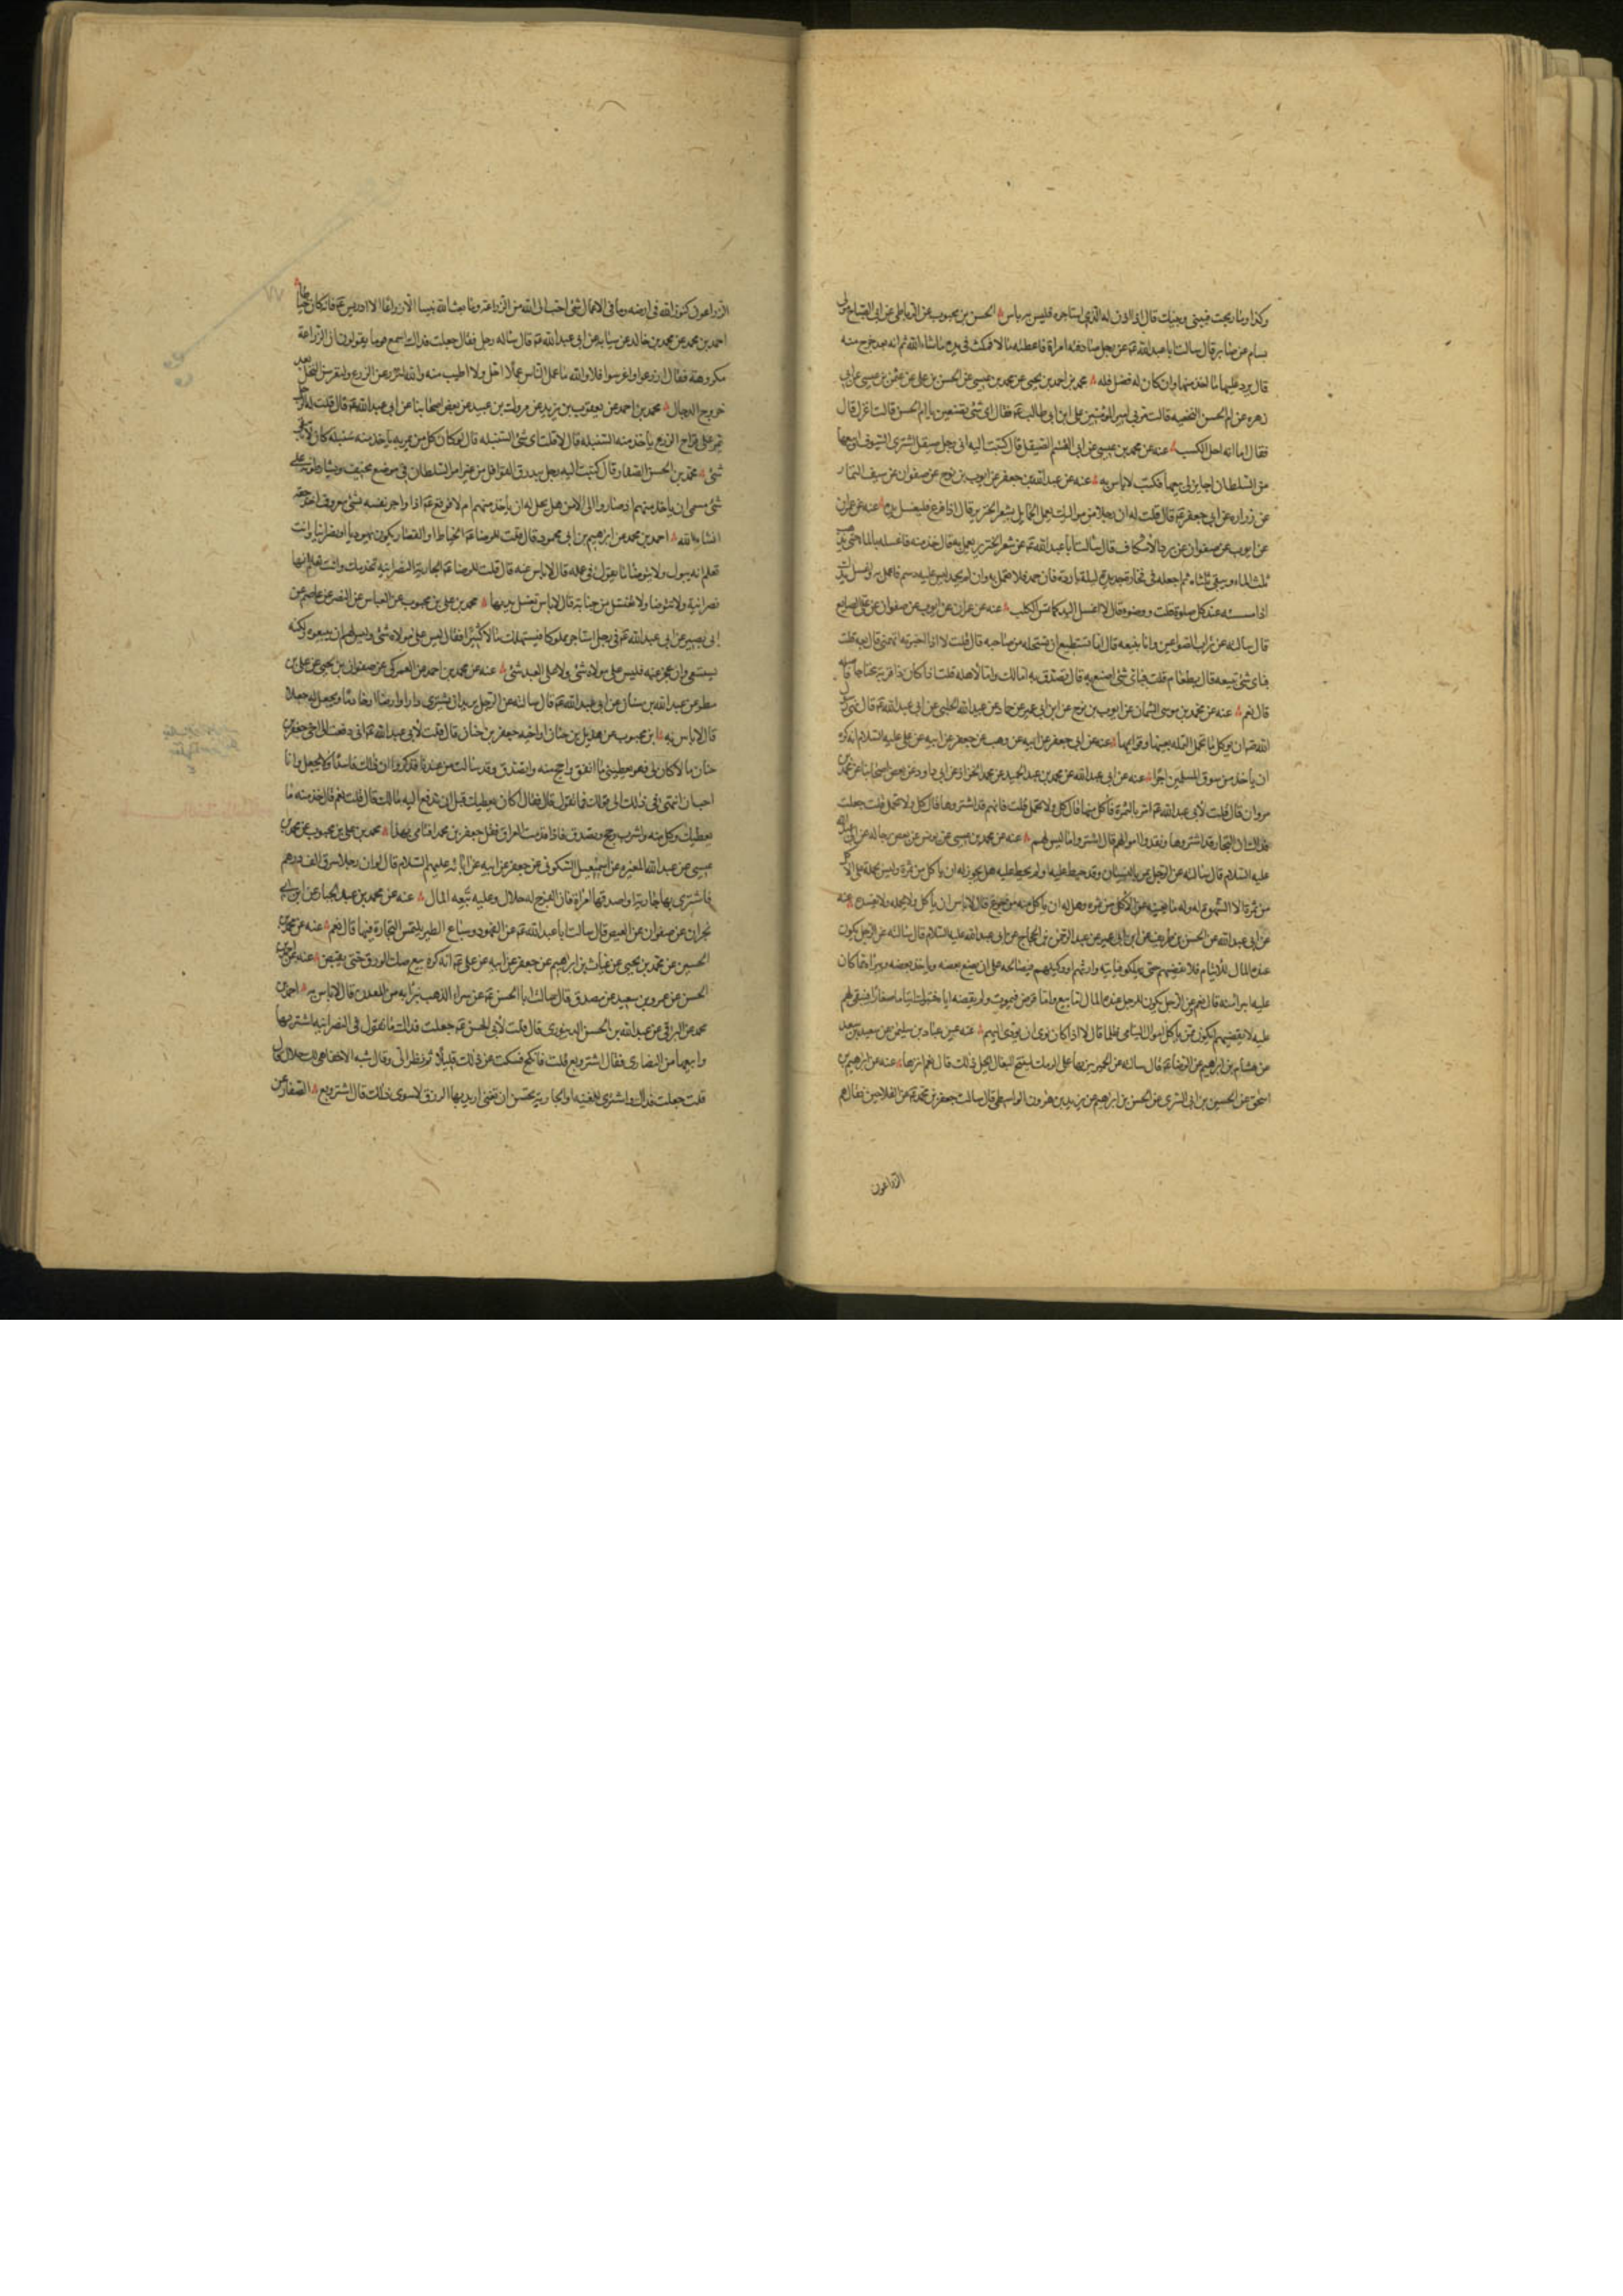 وكذا وما ربحت فبيني وبينك قال اذا اذن له الذي استاجره فليس به باس الحسن بن محبوب عن الرباطي عن ابي الصباح مولى
بسام عن جابر قال سالت ابا عبد الله ع عن رجل صادفته امراة فاعطته مالا فمكث في يده ما شاء الله ثم انه بعد خرج منه
قال يرد عليها ما اخذ منها وان كان له فضل فله محمد بن احمد بن يحيى عن محمد بن عيسى عن الحسن بن علي عن عثمن بن عيسى عن ابي
زهره عن ام الحسن النخعيه قالت مر بي امير المؤمنين علي ابن ابي طالب ع فقال اي شئ تصنعين يا ام الحسن قالت اغزل قال
فقال اما انه احل الكسب عنه عن محمد بن عيسى عن ابي القسم الصيقل قال كتبت اليه اني رجل صيقل اشترى السيوف وابيعها
من السلطان اجايز لي بيعها فكتب لا باس به عنه عن عبد الله بن جعفر عن ايوب بن نوح عن صفوان عن سيف التمار
عن زراره عن ابي جعفر ع قال قلت له ان رجلا من مواليك يعمل الحمايل بشعر الخنزير قال اذا فرغ فليغسل يده عنه عن عمران
عن ايوب عن صفوان عن برد الاسكاف قال سالت ابا عبد الله ع عن شعر الخنزير يعمل به قال خذ منه فاغسله بالماء حتى يذهب
ثلث الماء ويبقى ثلثاه ثم اجعله في فخارة جديدة ليلة باردة فان جمد فلا تعمل به وان لم يجمد ليس عليه دسم فاعمل به واغسل يدك
اذا مسسته عند كل صلوة قلت ووضوء قال لا اغسل اليد كما تمس الكلب عنه عن عمران عن ايوب عن صفوان عن علي الصايغ
قال سالته عن تراب الصواغين وانا نبيعه قال اما تستطيع ان تستحله من صاحبه قال قلت لا اذا اخبرته اتهمني قال بعه قلت
فباي شئ نبيعه قال بطعام قلت فباي شئ اصنع به قال تصدق به اما لك واما لاهله قلت فان كان ذا قرابة محتاجا فاصله
قال نعم عنه عن محمد بن موسى السمان عن ايوب بن نوح عن ابن ابي عمير عن حماد عن عبيد الله الحلبي عن ابي عبد الله ع قال نهى رسول
الله ص ان يوكل ما تحمل النملة بفيها وقوايمها عنه عن ابي جعفر عن ابيه عن وهب عن جعفر عن ابيه عن علي عليه السلام انه كره
ان ياخذ من سوق المسلمين اجرا عنه عن ابي عبد الله عن محمد بن عبد الحميد عن محمد الخزاز عن ابي داود عن بعض اصحابنا عن محمد بن
مروان قال قلت لابي عبد الله ع امر بالثمرة فاكل منها قال كل ولا تحمل قلت فانهم قد اشتروها قال كل ولا تحمل قلت جعلت
فداك ان التجار قد اشتروها ونقدوا اموالهم قال اشتروا ما ليس لهم عنه عن محمد بن عيسى عن يونس عن بعض رجاله عن ابي عبد الله
عليه السلام قال سالته عن الرجل يمر بالبستان وقد حيط عليه او لم يحط عليه هل يجوز له ان ياكل من ثمره وليس يحمله على الاكل
من ثمره الا الشهوة وله ما يغنيه عن الاكل من ثمره وهل له ان ياكل منه من جوع قال لا باس ان ياكل ولا يحمله ولا يفسده عنه
عن ابي عبد الله عن الحسن بن ظريف عن ابن ابي عمير عن عبد الرحمن بن الحجاج عن ابي عبد الله عليه السلام قال سالته عن الرجل يكون
عنده المال للايتام فلا يعطيهم حتى يهلكوا فياتيه وارثهم ووكيلهم فيصالحه على ان يضع بعضه وياخذ بعضه ويبرئه مما كان
عليه ايبرا منه قال نعم وعن الرجل يكون للرجل عنده المال اما بيع واما قرض فيموت ولم يقضه اياه فيترك ايتاما صغارا فيبقى لهم
عليه لا يقضيهم ايكون ممن ياكل اموال اليتامى ظلما قال لا اذا كان نوى ان يؤدي اليهم عنه عن عباد بن سليمن عن سعد بن سعد
عن هشام بن ابراهيم عن الرضا ع قال سالته عن الحمير ننزيها على الرمك لينتج البغال ايحل ذلك قال نعم انزها عنه عن ابراهيم بن
اسحق عن الحسين بن ابي السرى عن الحسن بن ابراهيم عن يزيد بن هرون الواسطي قال سالت جعفر بن محمد ع عن الفلاحين فقال هم
الزراعون
الزراعون كنوز الله في ارضه وما في الاعمال شئ احب الى الله من الزراعة وما بعث الله نبيا الا زراعا الا ادريس ع فانه كان خياطا
احمد بن محمد عن محمد بن خالد عن سيابه عن ابي عبد الله ع قال ساله رجل فقال جعلت فداك اسمع قوما يقولون ان الزراعة
مكروهة فقال ازرعوا واغرسوا فلا والله ما عمل الناس عملا احل ولا اطيب منه والله لنزرعن الزرع ولنغرسن النخل بعد
خروج الدجال محمد بن احمد عن يعقوب بن يزيد عن مروك بن عبيد عن بعض اصحابنا عن ابي عبد الله ع قال قلت له الرجل
يمر على قراح الزرع ياخذ منه السنبله قال لا قلت اي شئ السنبله قال لو كان كل من يمر به ياخذ منه سنبله كان لا يبقى
شئ محمد بن الحسن الصفار قال كتبت اليه رجل يبدرق القوافل من غير امر السلطان في موضع مخيف ويشارطونه على
شئ مسمى ان ياخذ منهم اذا صاروا الى الامن هل يحل له ان ياخذ منهم ام لا فوقع ع اذا واجر نفسه بشئ معروف اخذ حقه
انشاء الله احمد بن محمد عن ابراهيم بن ابي محمود قال قلت للرضا ع الخياط او القصار يكون يهوديا او نصرانيا وانت
تعلم انه يبول ولا يتوضا ما تقول في عمله قال لا باس عنه قال قلت للرضا ع الجارية النصرانيه تخدمك وانت تعلم انها
نصرانية ولا تتوضا ولا تغتسل من جنابة قال لا باس تغسل يديها محمد بن علي بن محبوب عن العباس عن النضر عن عاصم عن
ابي بصير عن ابي عبد الله ع في رجل استاجر مملوكا فيستهلك مالا كثيرا فقال ليس على مولاه شئ وليس لهم ان يبيعوه ولكنه
يستسعى وان عجز عنه فليس على مولاه شئ ولا على العبد شئ عنه عن محمد بن احمد عن العمركي عن صفوان بن يحيى عن علي بن
مطر عن عبد الله بن سنان عن ابي عبد الله ع قال سالته عن الرجل يريد ان يشترى دارا او ارضا او خادما ويجعل له جعلا
قال لا باس به ابن محبوب عن هذيل بن حنان اواخيه جعفر بن حنان قال قلت لابي عبد الله ع اني دفعت الى اخي جعفر بن
حنان مالا كان لي فهو يعطيني ما انفق واحج منه واتصدق وقد سالت من عندنا فذكروا ان ذلك فاسد لا يحل وانا
احب ان انتهى في ذلك الى قولك فما تقول قال فقال اكان يعطيك قبل ان تدفع اليه مالك قال قلت نعم قال خذ منه ما
يعطيك وكل منه واشرب وحج وتصدق فاذا قدمت العراق فقل جعفر بن محمد افتاني بهذا محمد بن علي بن محبوب عن محمد بن
عيسى عن عبد الله المغيره عن اسمعيل السكوني عن جعفر عن ابيه عن ابائه عليهم السلام قال لو ان رجلا سرق الف درهم
فاشترى بها جارية او اصدقها امراة فان الفرج له حلال وعليه تبعه المال عنه عن محمد بن عبد الجبار عن ابن ابي
نجران عن صفوان عن العيص قال سالت ابا عبد الله ع عن الفهود وسباع الطير يلتمس التجارة فيها قال نعم عنه عن محمد بن
الحسين عن محمد بن يحيى عن غياث بن ابراهيم عن جعفر عن ابيه عن علي ع انه كره بيع صك الورق حتى يقبض عنه عن احمد بن
الحسن عن عمرو بن سعيد عن مصدق قال سالت ابا الحسن ع عن شراء الذهب بترابه من المعدن قال لا باس به احمد بن
محمد عن البرقي عن عبد الله بن الحسن الدينوري قال قلت لابي الحسن ع جعلت فداك ما تقول في النصرانيه اشتريها
وابيعها من النصارى فقال اشتر وبع قلت فانكح فسكت عن ذلك قليلا ثم نظر الي وقال شبه الاخفا هي لك حلال قال
قلت جعلت فداك واشترى المغنيه او الجارية تحسن ان تغني اريد بها الرزق لا سوى ذلك قال اشتر وبع الصفار عن